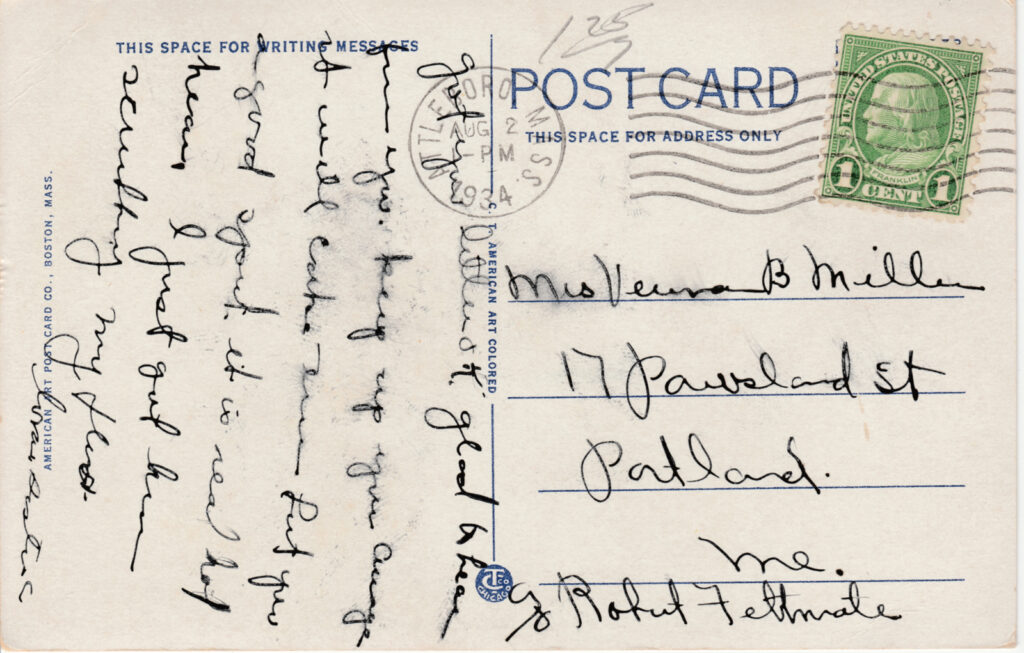 THIS SPACE FOR WRITING MESSAGES
got your letter o.K. glad to hear
from you. keep up your courage
it will
a good sport. it is real hot
hear I just got
my floor.
125
POST CARD
THIS SPACE FOR ADDRESS ONLY
ATTLEBORO MASS.
AUG 2
-PM
1934
UNITED STATES POSTAGE
FRANKLIN
1 CENT 1
Mrs Verna B Miller
17 St
Portland.
Me.
c/o Robert
C. T. AMERICAN ART COLORED
CT CO CHICAGO
AMERICAN ART POST CARD CO., BOSTON, MASS.